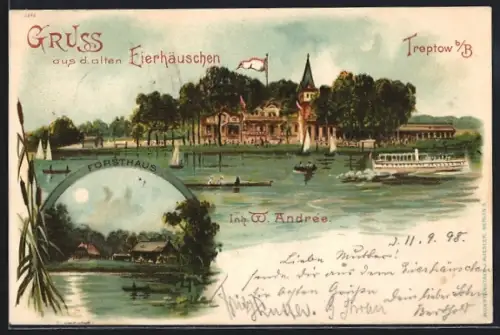 GRUSS
aus d. alten Eierhäuschen
Treptow b/B
FORSTHAUS
Inh. W. Andree.
d. 11. 9. 98.
Liebe Mutter!
sende dir aus dem Eierhäuschen
die besten Grüße dein lieber Sohn
Berthold